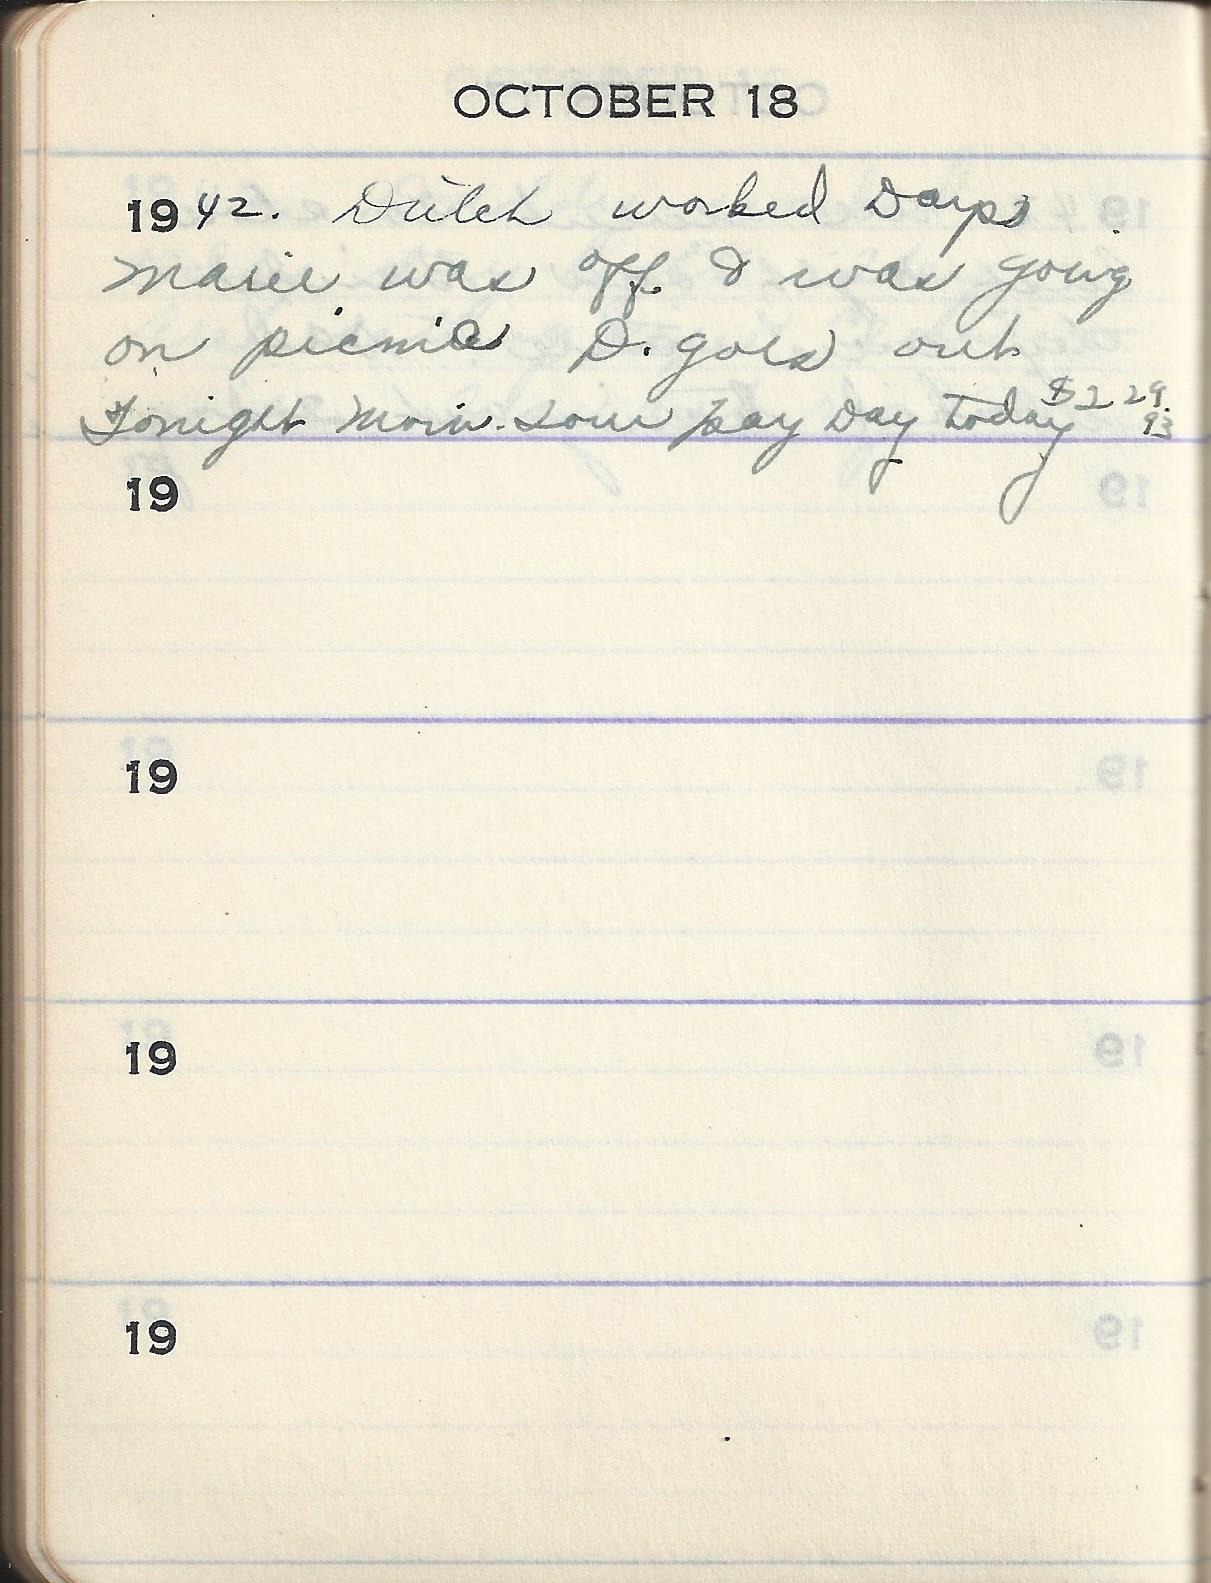 OCTOBER 18
1942. Dutch worked Days
Marie was off. I was going
on picnic D. goes out
Tonight Pay Day Today $229.
93
19
19
19
19